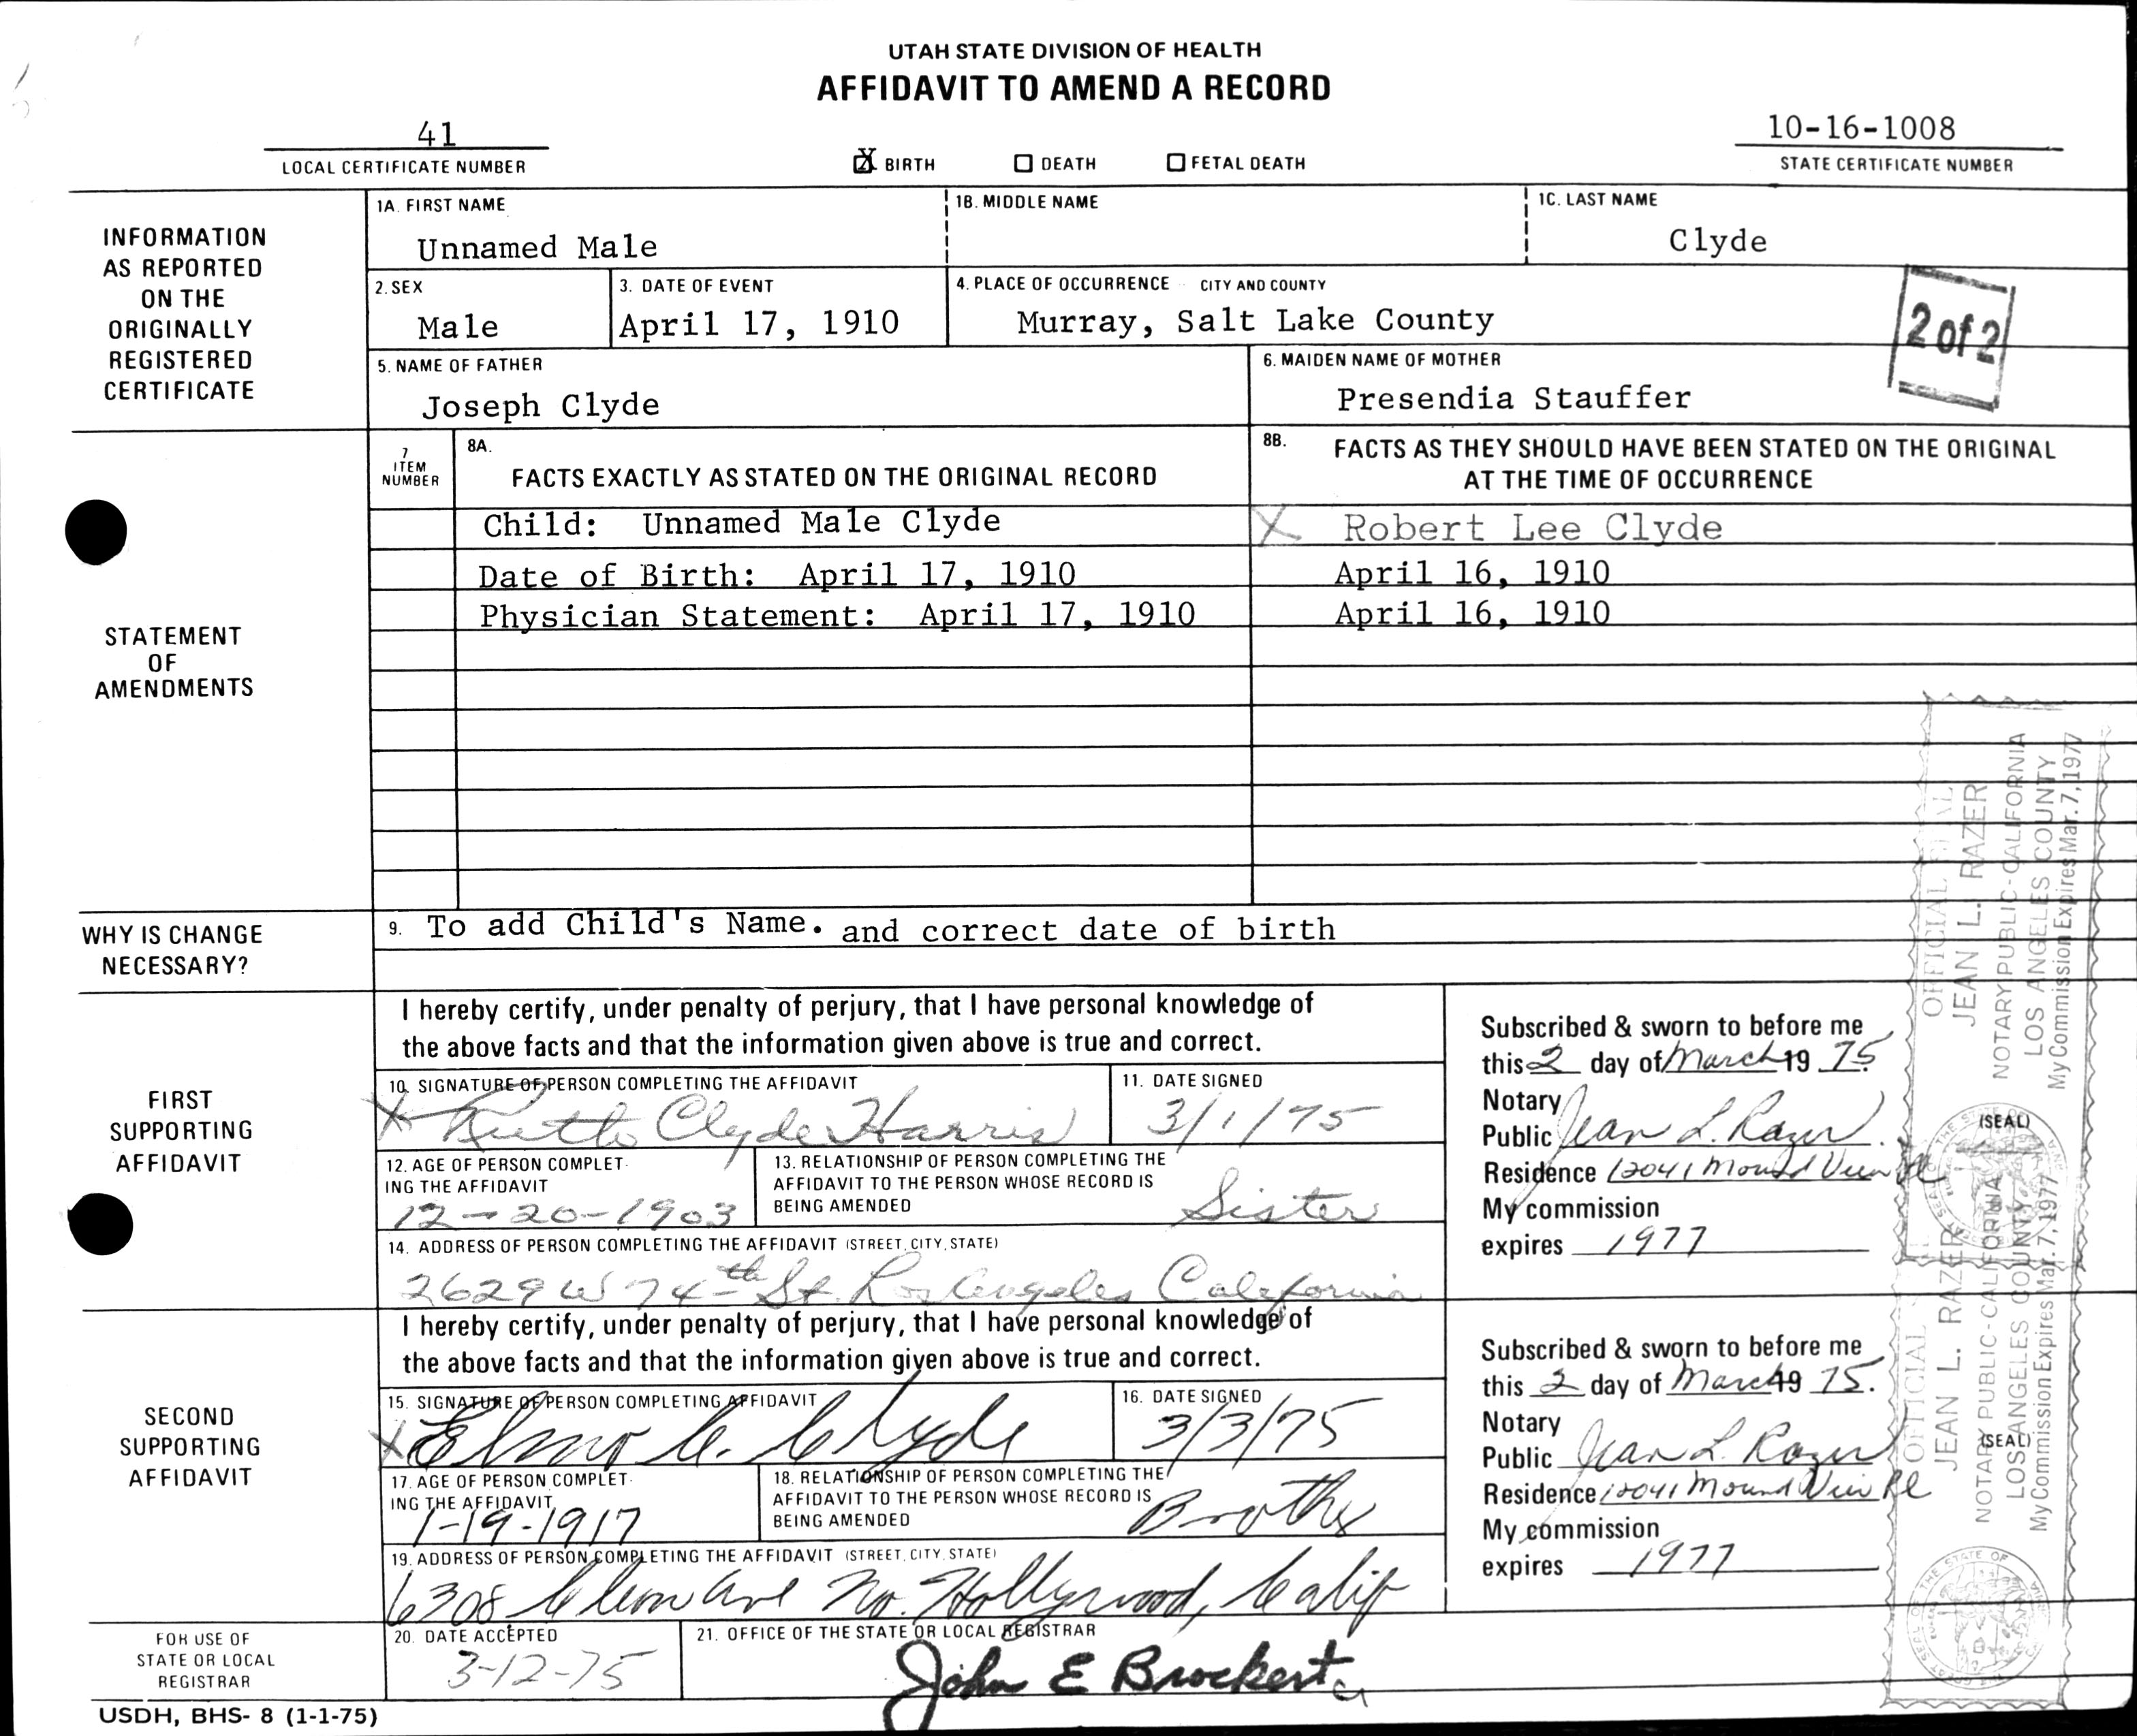 UTAH STATE DIVISION OF HEALTH
AFFIDAVIT TO AMEND A RECORD
41
LOCAL CERTIFICATE NUMBER
X BIRTH DEATH FETAL DEATH
10-16-1008
STATE CERTIFICATE NUMBER
INFORMATION
AS REPORTED
ON THE
ORIGINALLY
REGISTERED
CERTIFICATE
1A. FIRST NAME
Unnamed Male
1B. MIDDLE NAME
1C. LAST NAME
Clyde
2. SEX
Male
3. DATE OF EVENT
April 17, 1910
4. PLACE OF OCCURRENCE CITY AND COUNTY
Murray, Salt Lake County
2 of 2
5. NAME OF FATHER
Joseph Clyde
6. MAIDEN NAME OF MOTHER
Presendia Stauffer
STATEMENT
OF
AMENDMENTS
7
ITEM
NUMBER
8A.
FACTS EXACTLY AS STATED ON THE ORIGINAL RECORD
8B. FACTS AS THEY SHOULD HAVE BEEN STATED ON THE ORIGINAL
AT THE TIME OF OCCURRENCE
Child: Unnamed Male Clyde
X Robert Lee Clyde
Date of Birth: April 17, 1910
April 16, 1910
Physician Statement: April 17, 1910
April 16, 1910
WHY IS CHANGE
NECESSARY?
9. To add Child's Name. and correct date of birth
FIRST
SUPPORTING
AFFIDAVIT
I hereby certify, under penalty of perjury, that I have personal knowledge of
the above facts and that the information given above is true and correct.
10. SIGNATURE OF PERSON COMPLETING THE AFFIDAVIT
X Ruth Clyde Harris
11. DATE SIGNED
3/1/75
12. AGE OF PERSON COMPLET-
ING THE AFFIDAVIT
12-20-1903
13. RELATIONSHIP OF PERSON COMPLETING THE
AFFIDAVIT TO THE PERSON WHOSE RECORD IS
BEING AMENDED
Sister
14. ADDRESS OF PERSON COMPLETING THE AFFIDAVIT (STREET, CITY, STATE)
2629 W 74th St. Los Angeles California
Subscribed & sworn to before me
this 2 day of March 19 75.
Notary
Public Jean L. Razer
(SEAL)
Residence 12041 Mound View Pl
My commission
expires 1977
OFFICIAL SEAL
JEAN L. RAZER
NOTARY PUBLIC-CALIFORNIA
LOS ANGELES COUNTY
My Commission Expires Mar. 7, 1977
SECOND
SUPPORTING
AFFIDAVIT
I hereby certify, under penalty of perjury, that I have personal knowledge of
the above facts and that the information given above is true and correct.
15. SIGNATURE OF PERSON COMPLETING AFFIDAVIT
X Elmo C. Clyde
16. DATE SIGNED
3/3/75
17. AGE OF PERSON COMPLET-
ING THE AFFIDAVIT
1-19-1917
18. RELATIONSHIP OF PERSON COMPLETING THE
AFFIDAVIT TO THE PERSON WHOSE RECORD IS
BEING AMENDED
Brother
19. ADDRESS OF PERSON COMPLETING THE AFFIDAVIT (STREET, CITY, STATE)
6308 Cleon Ave No. Hollywood, Calif
Subscribed & sworn to before me
this 2 day of March 19 75.
Notary
Public Jean L. Razer
(SEAL)
Residence 12041 Mound View Pl
My commission
expires 1977
OFFICIAL
JEAN L. RAZER
NOTARY PUBLIC-CALIFORNIA
LOS ANGELES COUNTY
My Commission Expires Mar. 7, 1977
FOR USE OF
STATE OR LOCAL
REGISTRAR
20. DATE ACCEPTED
3-12-75
21. OFFICE OF THE STATE OR LOCAL REGISTRAR
John E Brockert
USDH, BHS- 8 (1-1-75)